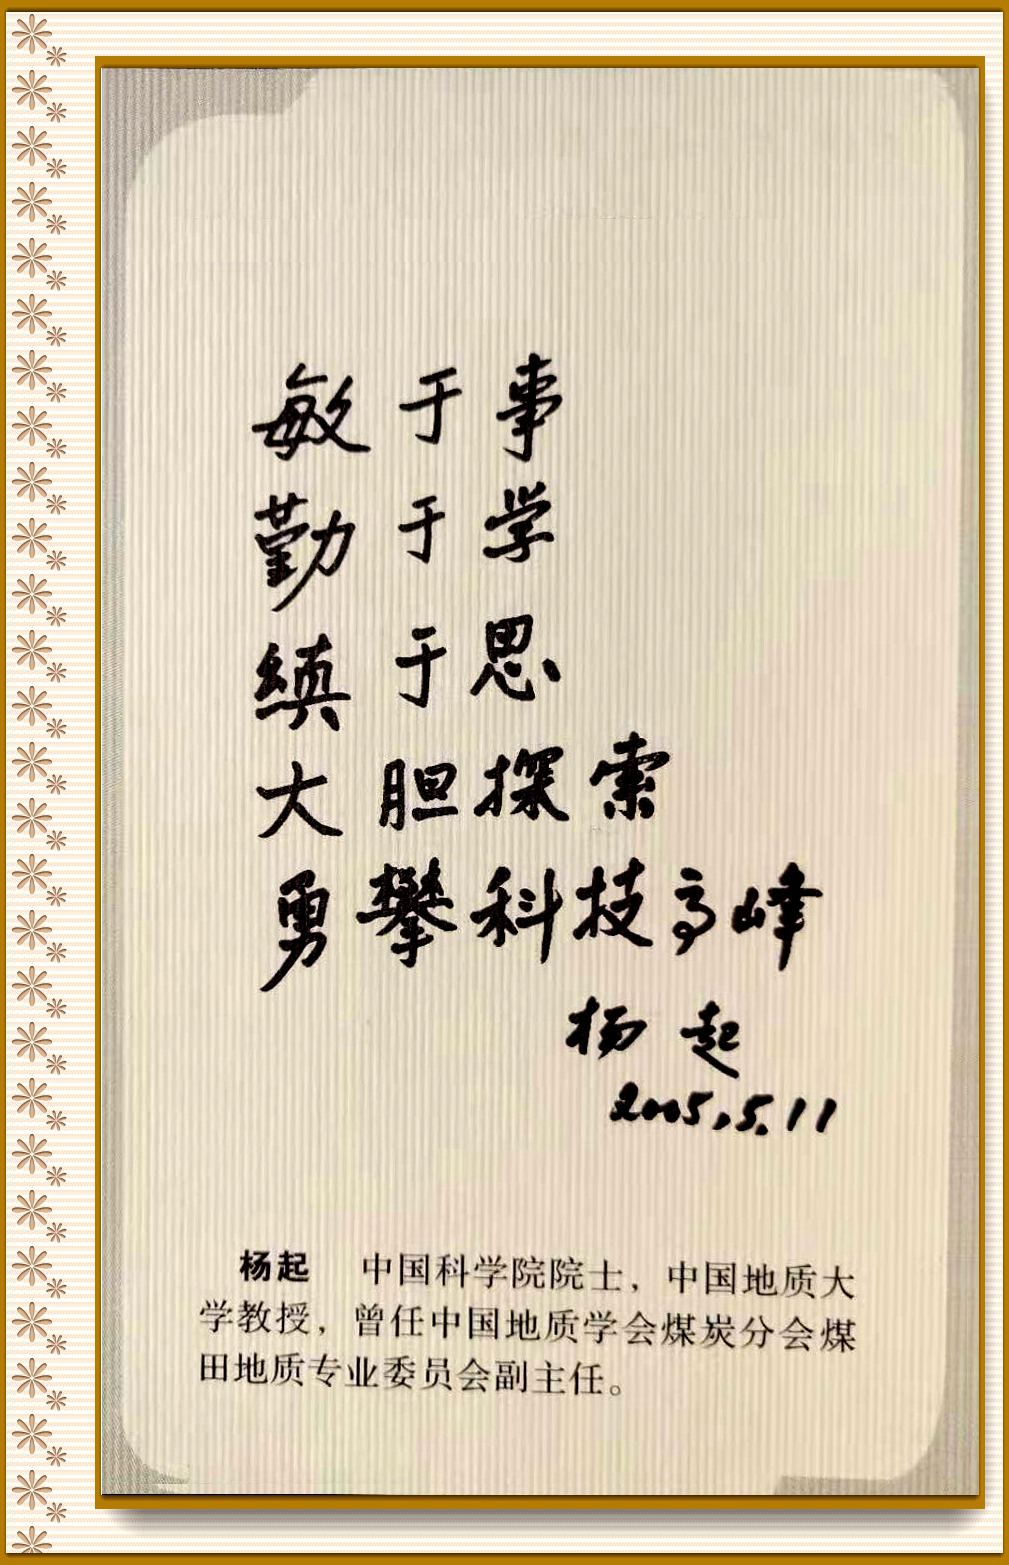 敏于事
勤于学
縝于思
大胆探索
勇攀科技高峰
杨起
2005.5.11
杨起 中国科学院院士，中国地质大
学教授，曾任中国地质学会煤炭分会煤
田地质专业委员会副主任。